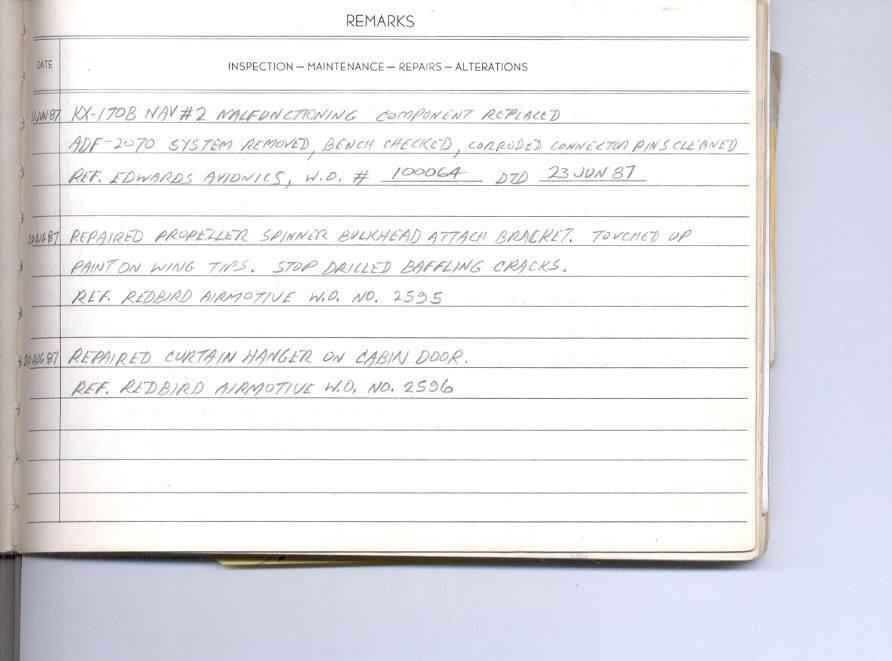 REMARKS
DATE INSPECTION — MAINTENANCE — REPAIRS — ALTERATIONS
JUN 87 KX-170B NAV #2 MALFUNCTIONING COMPONENT REPLACED
ADF-2070 SYSTEM REMOVED, BENCH CHECKED, CORRODED CONNECTOR PINS CLEANED
REF. EDWARDS AVIONICS, W.O. # 100064 DTD 23 JUN 87
20 AUG 87 REPAIRED PROPELLER SPINNER BULKHEAD ATTACH BRACKET. TOUCHED UP
PAINT ON WING TIPS. STOP DRILLED BAFFLING CRACKS.
REF. REDBIRD AIRMOTIVE W.O. NO. 2595
20 AUG 87 REPAIRED CURTAIN HANGER ON CABIN DOOR.
REF. REDBIRD AIRMOTIVE W.O. NO. 2596